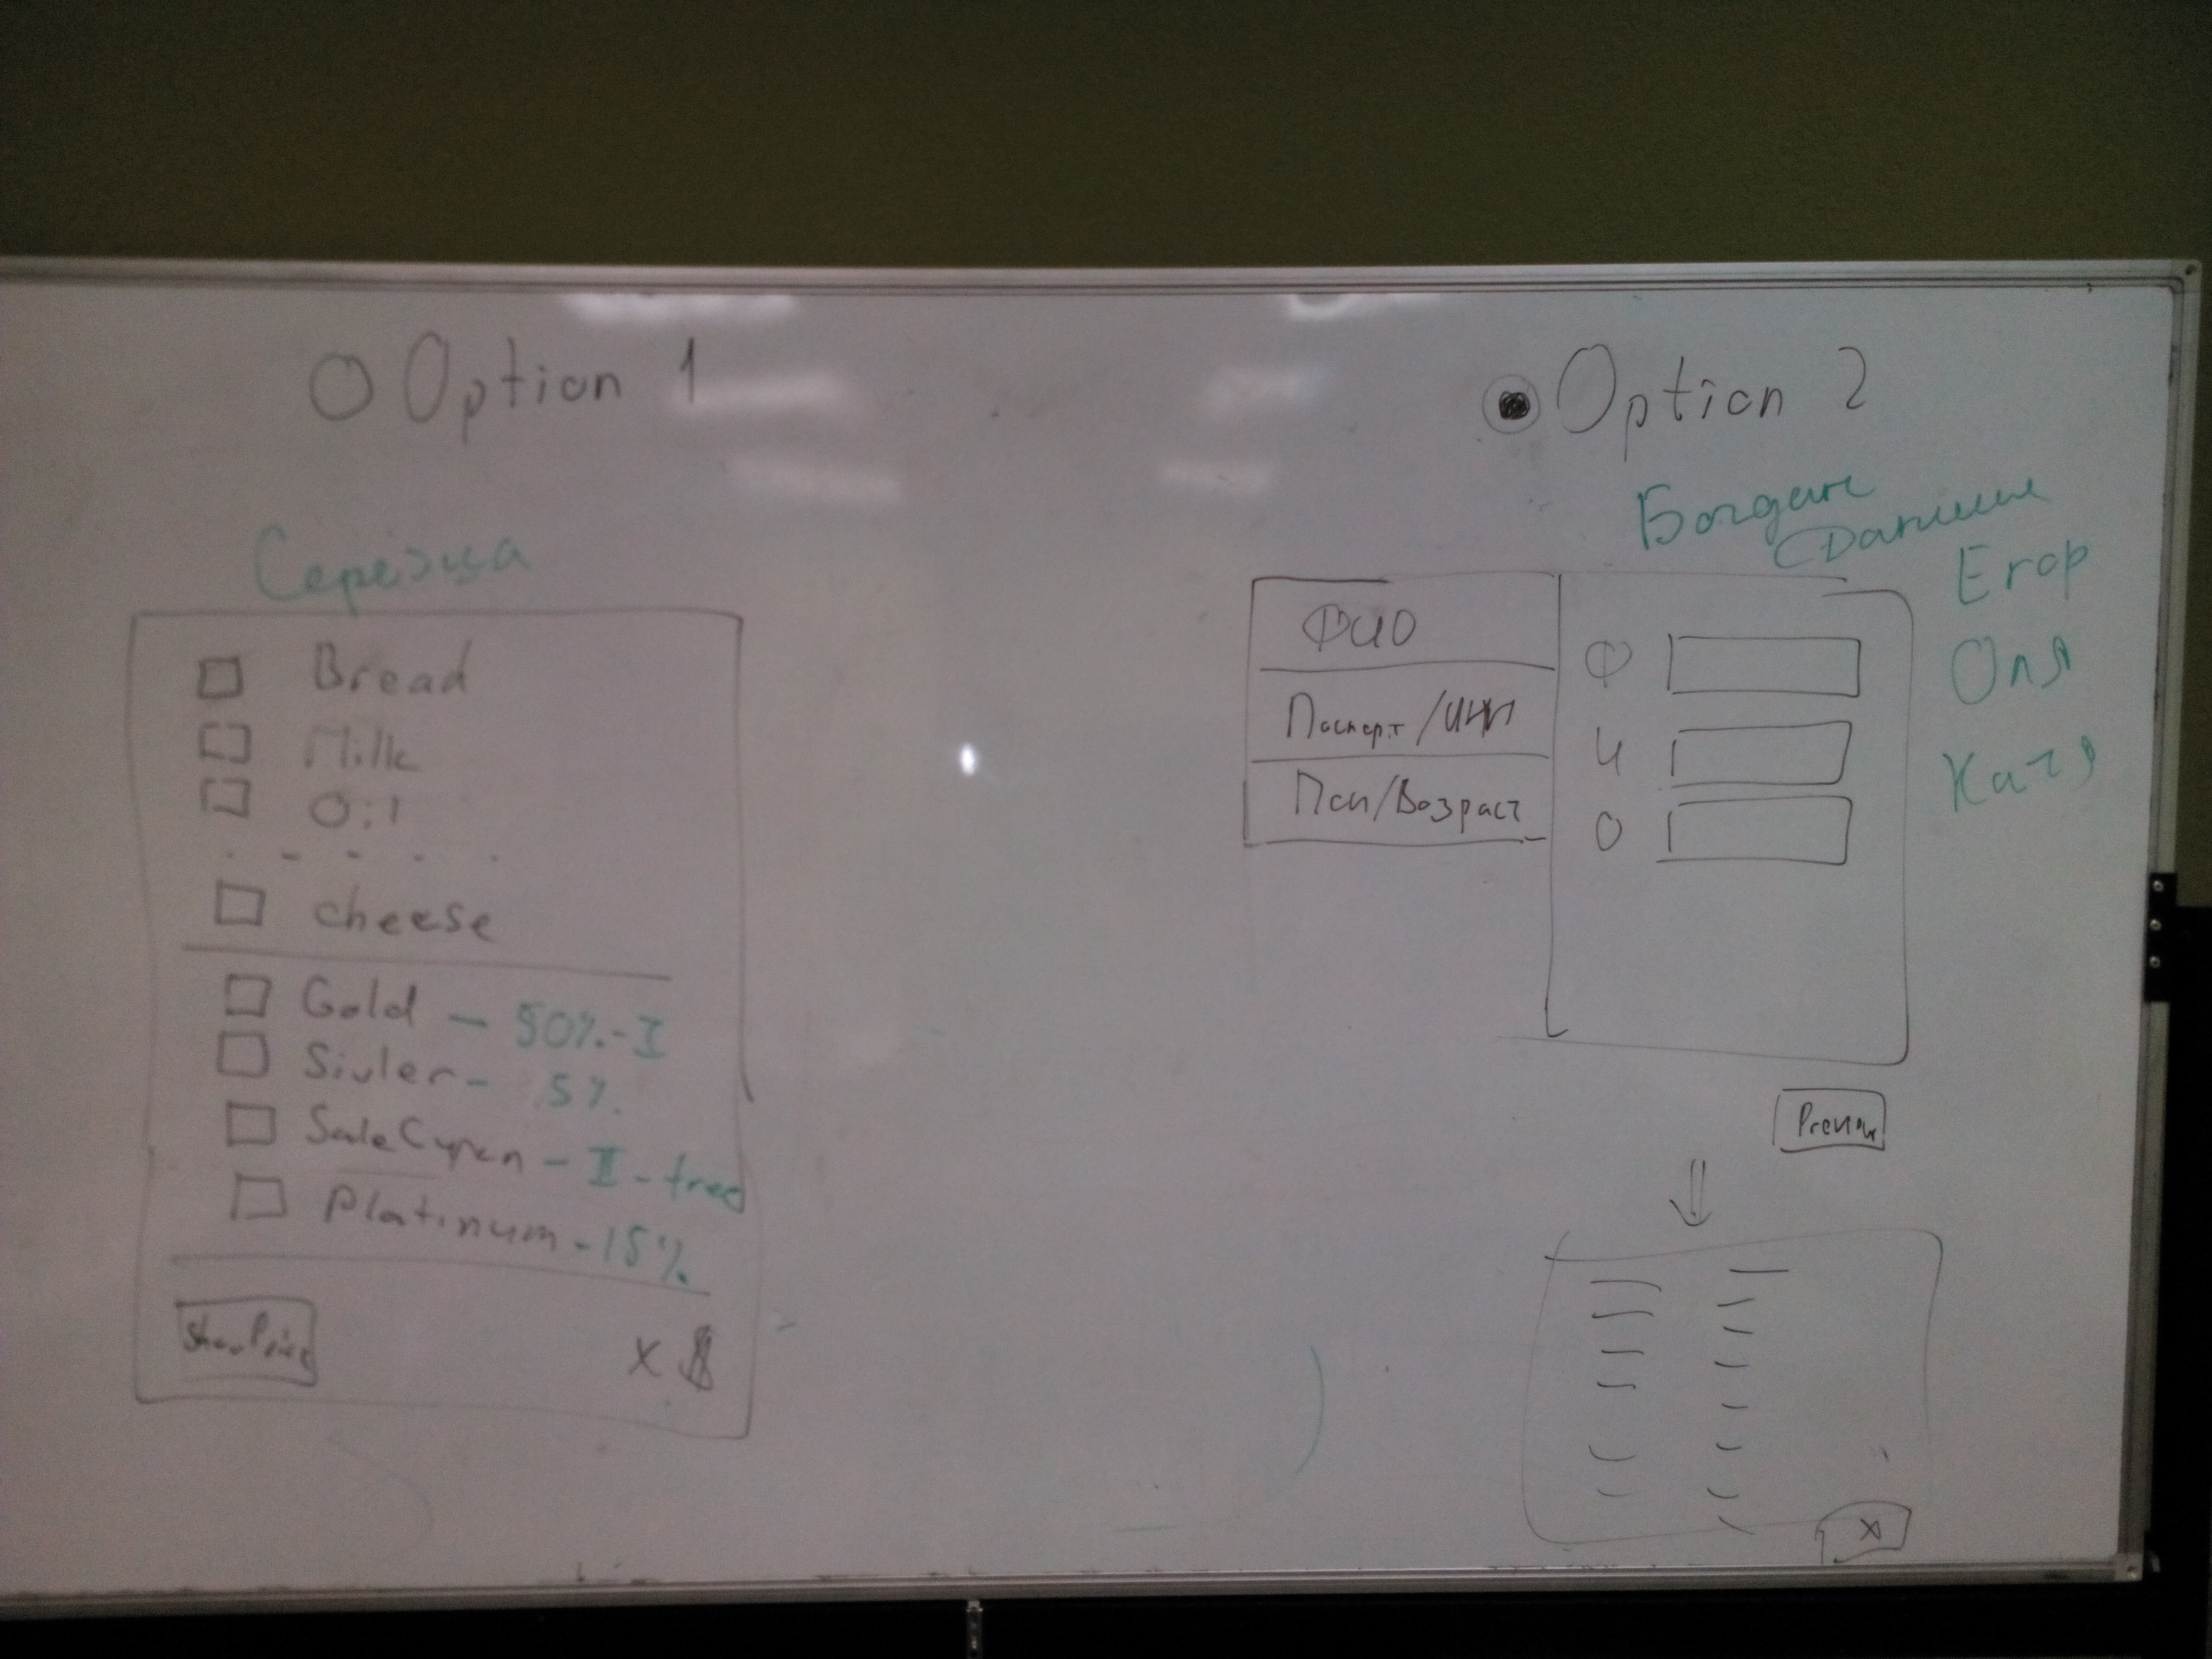 Option 1
Bread
Milk
Oil
cheese
Gold - 50%-I
Sivler - 5%
SaleCypon - II - free
Platinum - 15%
Show Price
X $
Option 2
Богдан
Даниил
Егор
Оля
Катя
ФИО
Паспорт/ИНН
Пол/Возраст
Ф
И
О
Preview
X